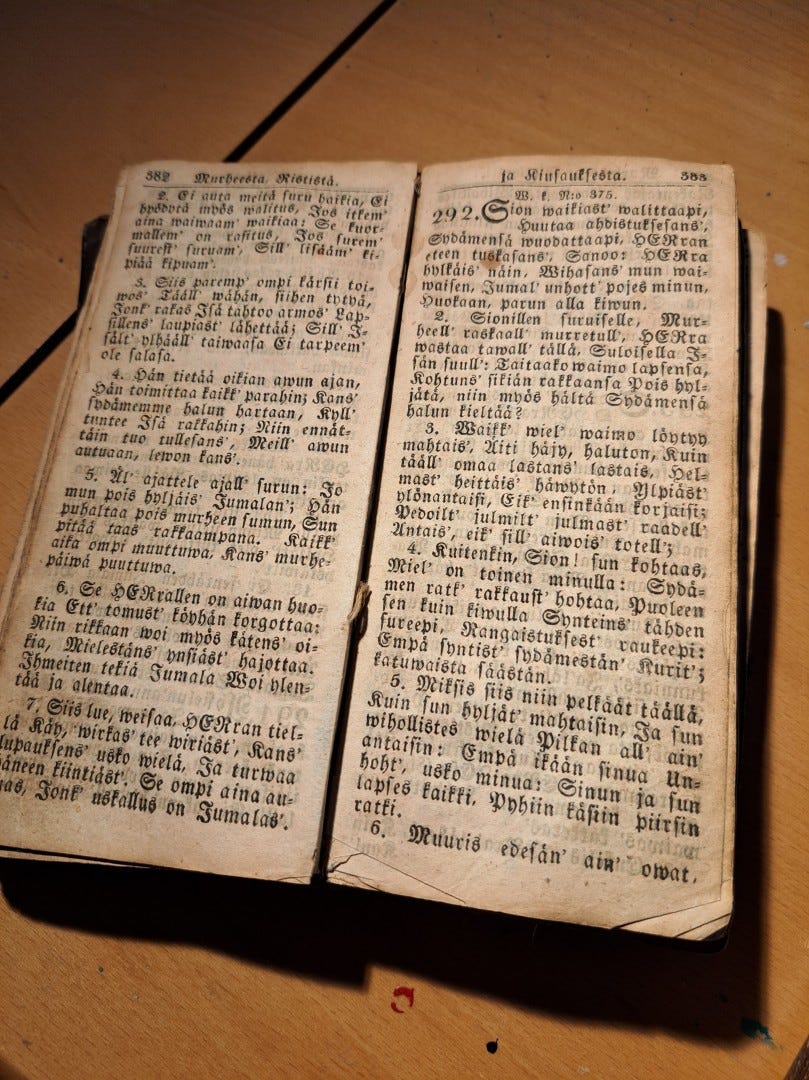 382 Murheesta Rististä.
2. Ei auta meitä suru haikia, Ei
hyödytä myös walitus, Jos itkem'
aina waiwaam' waikiaa: Se kuor-
mallem' on rasitus, Jos surem'
suurest' suruam', Sill' lisääm' ki-
piää kipuam'.
3. Siis paremp' ompi kärsii toi-
wos' Tääll' wähän, siihen tytyä,
Jonk' rakas Isä tahtoo armos' Lap-
sillens' laupiast' lähettää; Sill' I-
sält' ylhääll' taiwaasa Ei tarpeem'
ole salasa.
4. Hän tietää oikian awun ajan,
Hän toimittaa kaikk' parahin; Kans'
sydämemme halun hartaan, Kyll'
tuntee Isä rakkahin; Niin ennät-
täin tuo tullesans', Meill' awun
autuaan, lewon kans'.
5. Äl' ajattele ajall' surun: Jo
mun pois hyljäis' Jumalan'; Hän
puhaltaa pois murheen sumun, Sun
pitää taas rakkaampana. Kaikk'
aika ompi muuttuwa, Kans' murhe-
päiwä puuttuwa.
6. Se HERrallen on aiwan huo-
kia Ett' tomust' köyhän korgottaa:
Niin rikkaan woi myös kätens' oi-
kia, Mielestäns' ynsiäst' hajottaa.
Ihmeiten tekiä Jumala Woi ylen-
tää ja alentaa.
7. Siis lue, weisaa, HERran tiel-
lä Käy, wirkas' tee wiriäst', Kans'
lupauksens' usko wielä, Ja turwaa
häneen kiintiäst'. Se ompi aina au-
uas, Jonk' uskallus on Jumalas'.
ja Kiusauksesta. 383
W. k. N:o 375.
292. Sion waikiast' walittaapi,
Huutaa ahdistuksesans',
Sydämensä wuodattaapi, HERran
eteen tuskasans', Sanoo: HERra
hylkäis' näin, Wihasans' mun wai-
waisen, Jumal' unhott' pojes minun,
Huokaan, parun alla kiwun.
2. Sionillen suruiselle, Mur-
heell' raskaall' murretull', HERra
wastaa tawall' tällä, Suloisella I-
sän suull': Taitaako waimo lapsensa,
Kohtuns' sikiän rakkaansa Pois hyl-
jätä, niin myös hältä Sydämensä
halun kieltää?
3. Waikk' wiel' waimo löytyy
mahtais', Äiti häjy, haluton, Kuin
tääll' omaa lastans' lastais, Hel-
mast' heittäis' häwytön, Ylpiäst'
ylönantaisi, Eik' ensinkään korjaisi;
Pedoilt' julmilt' julmast' raadell'
Antais', eik' sill' aiwois' totell';
4. Kuitenkin, Sion! sun kohtaas,
Miel' on toinen minulla: Sydä-
men ratk' rakkaust' hohtaa, Puoleen
sen kuin kiwulla Synteins' tähden
sureepi, Rangaistuksest' raukeepi:
Empä syntist' sydämestän' Kurit';
katuwaista säästän.
5. Miksis siis niin pelkäät täällä,
Kuin sun hyljät' mahtaisin, Ja sun
wihollistes wielä Pilkan all' ain'
antaisin: Empä ikään sinua Un-
hoht', usko minua: Sinun ja sun
lapses kaikki, Pyhiin käsiin piirsin
ratki.
6. Muuris edesän' ain' owat,